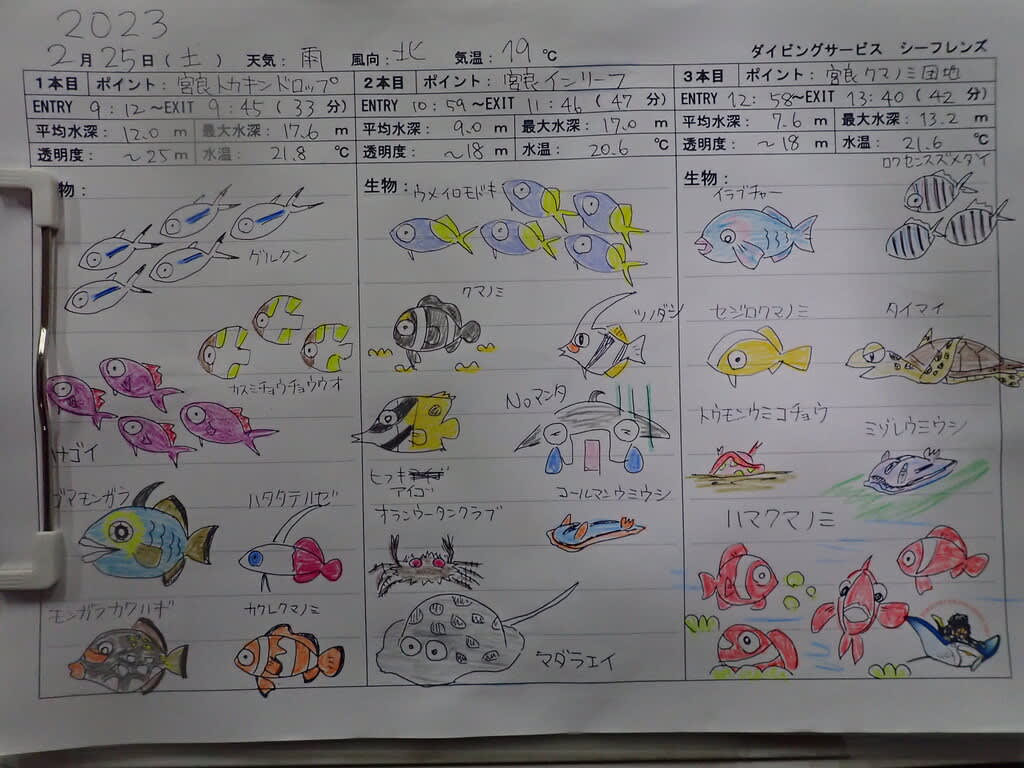 2023
2月25日(土) 天気: 雨 風向: 北 気温: 19 ℃ ダイビングサービス シーフレンズ
1本目 ポイント: 宮良トカキンドロップ
ENTRY 9:12~EXIT 9:45 (33分)
平均水深: 12.0 m 最大水深: 17.6 m
透明度: ~25m 水温: 21.8 ℃
物:
グルクン
カスミチョウチョウウオ
ナゴイ
ゴマモンガラ ハタタテハゼ
モンガラカワハギ カクレクマノミ
2本目 ポイント: 宮良インリーフ
ENTRY 10:59~EXIT 11:46 (47分)
平均水深: 9.0 m 最大水深: 17.0 m
透明度: ~18 m 水温: 20.6 ℃
生物: ウメイロモドキ
クマノミ
ツノダシ
Noマンタ
ヒフキ
アイゴ コールマンウミウシ
オランウータンクラブ
マダラエイ
3本目 ポイント: 宮良クマノミ団地
ENTRY 12:58~EXIT 13:40 (42分)
平均水深: 7.6 m 最大水深: 13.2 m
透明度: ~18 m 水温: 21.6 ℃
ロクセンスズメダイ
生物: イラブチャー
セジロクマノミ タイマイ
トウモンウミコチョウ ミゾレウミウシ
ハマクマノミ